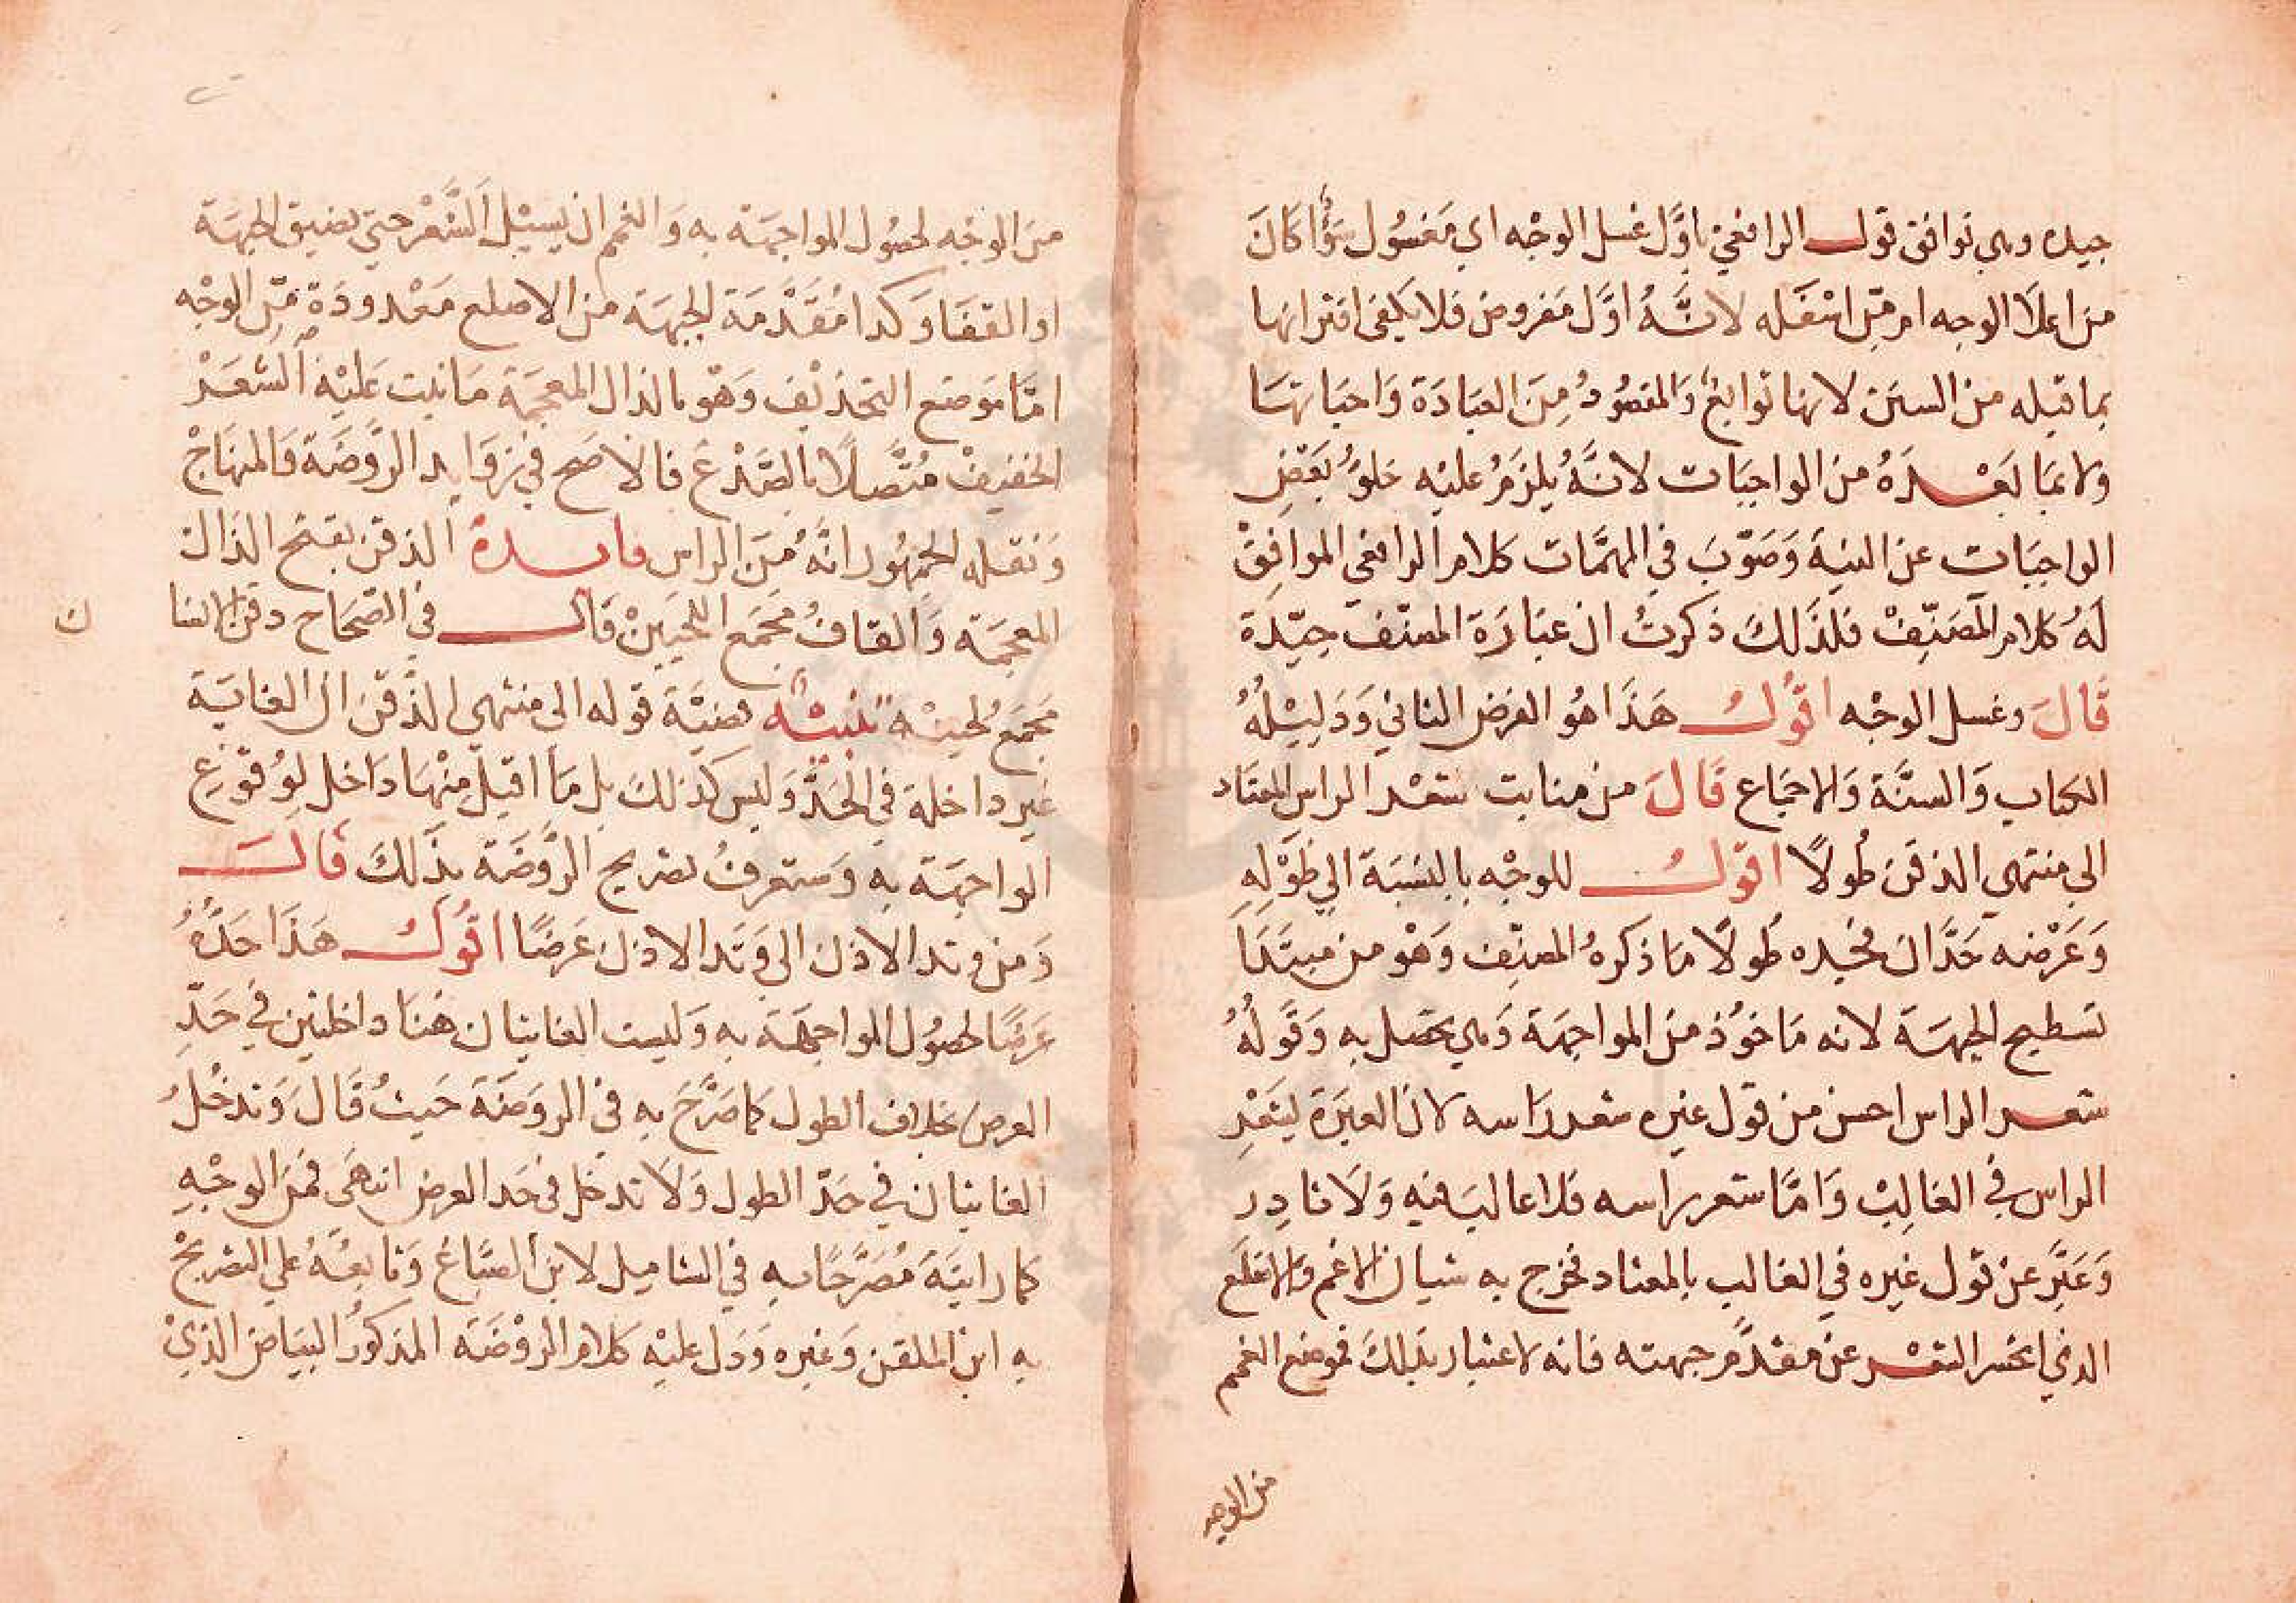 جيده وهي توافق قول الرافعي باوَّل غسل الوجْه اي مَغسُول سَوَّا كانَ
من اعلا الوجه ام مِن اسْفَله لانَّهُ اوَّل مَفروض فلا يَكفي اقترانها
بما قبله من السنن لانها توابعُ وَالمقصُودُ مِنَ العبَادَة وَاجبَاتهَا
ولا بمَا بَعْدَهُ من الواجبَات لانَّهُ يلزَمُ عليْه خلوّ بَعْضِ
الواجبَات عن النيةِ وَصَوّبَ في المهمَّات كلام الرافعي الموافِقْ
لَهُ كلام المصَنِّفْ فلذَلكَ ذكرتُ ان عبَارَة المصنّف جيّدة
قَالَ وغسل الوجْه اقوُلُ هَذَا هُو الفرض الثاني وَدَلِيْلُهُ
الكتاب وَالسنَّة وَالاجمَاع قَالَ من منابت شعْر الراس المعتَاد
الي منتهي الذقن طُولًا اقوُلُ للوجْه بالنسْبَة الي طَوْلِهِ
وَعَرْضه حَدَّان فحَده طُولًا مَا ذكرهُ المصنِّف وَهْو من مبتَدَا
تسَطيح الجبهَة لانه مَاخوُذ من المواجهَة وَهي تحصَل به وَقَولُهُ
شعر الراس احسن من قول غيره شعر رَاسه لان العبرَة لشَعْرِ
الراس في الغالِبْ وَامَّا شعر راسه فلا غالبَ فيهِ وَلَا نادِر
وَعَبَّر عن قول غيره في الغالب بالمعتاد فخرج به شيان الاغم وَالاصَلَع
الذي انحسَر الشعْر عن مقدَّم جبهته فانه لا اعتبار بذلكَ فموضع الغمم
من الوجه
منَ الوجْه لحصُول المواجهَة به وَالغمم ان يَسِيْل الشَّعْر حتي تضيق الجبهَة
او القفَا وَكذا مُقَدَّمَة الجبهَة من الاصلع مَعْدودَة مِن الوجْه
امَّا مَوضع التحذيْف وَهْو بالذال المعجمَة مَا نبت عَليْه الشعَرْ
الخفيفْ مُتَّصلًا بالصَّدْغ فالاصَح في زوَايد الرَّوضَة وَالمنهَاجْ
وَنقله الجمهُور انَّهُ مِنَ الراس فايدة الذقن بفتح الذال
المعجمَة وَالقافُ مَجمَع اللحيَينْ قَال في الصّحَاح ذقن الانسا
ن
مَجمَعُ لحييْه تنبيْه قضيَّة قوله الى منتهي الذَّقن ان الغايَة
غير داخلة في الحَدّ وَليس كذلكَ بل مَا اقبل منْهَا دَاخل لِوُقوُعِ
المواجهَة بهِ وَستعرفُ تصريح الرَّوضَة بذَلكَ قَالَ
وَمن وتد الاذن الي وَتد الاذن عَرضًا اقوُلُ هَذَا حَدُّهُ
عَرضًا لحصُول المواجهَة به وَليست الغايتان هُنَا داخلتين في حَدِّ
العرض بخلاف الطول كما صَرَّحَ بهِ في الروضَة حَيثُ قَالَ وَتدخُلُ
الغايتان في حَدّ الطول وَلَا تدخل في حَد العرض انتهَى فمنَ الوجْهِ
كما رايتَهُ مُصَرَّحًا به في الشامِل لابن الصبَّاغ وَتابعُهُ علي التصْريحْ
بهِ ابن الملقن وَغيره وَدَل عليْه كلام الروْضَه المذكوُر البيَاض الذيْ